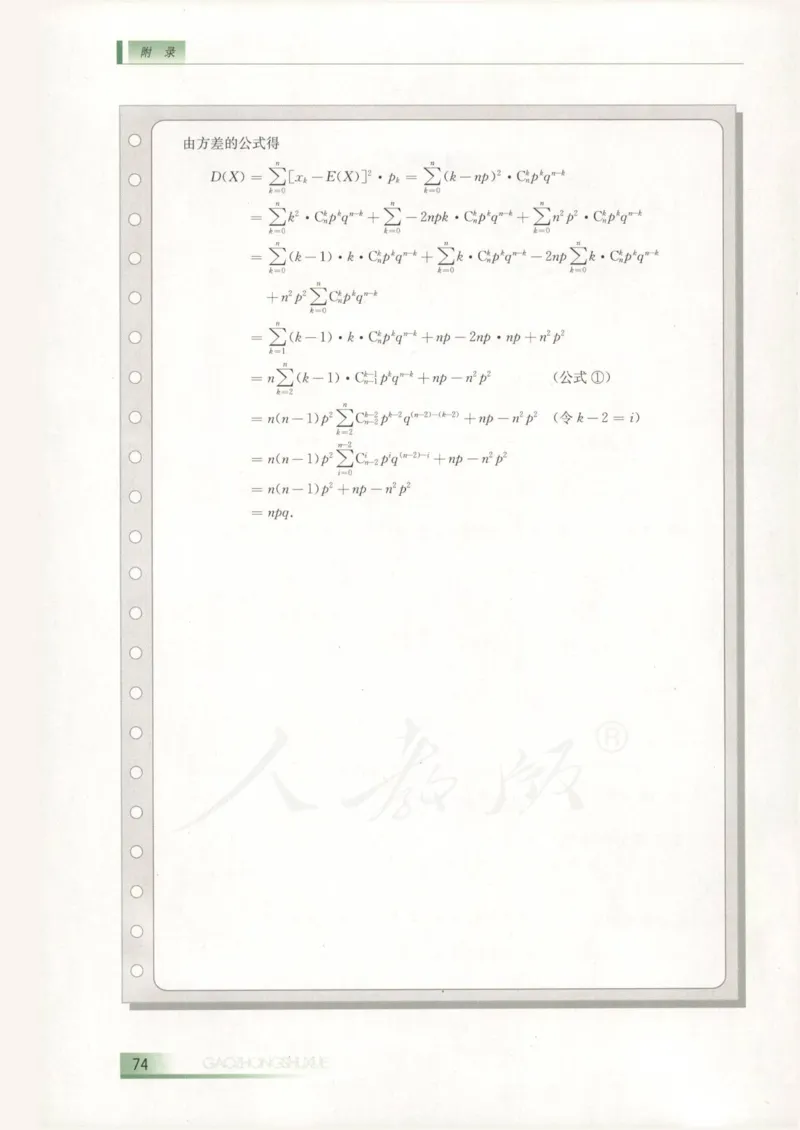 附 录
由方差的公式得
D(X) = \sum_{k=0}^{n}[x_k-E(X)]^2·p_k = \sum_{k=0}^{n}(k-np)^2·C_n^k p^k q^{n-k}
= \sum_{k=0}^{n}k^2·C_n^k p^k q^{n-k} + \sum_{k=0}^{n}-2npk·C_n^k p^k q^{n-k} + \sum_{k=0}^{n}n^2p^2·C_n^k p^k q^{n-k}
= \sum_{k=0}^{n}(k-1)·k·C_n^k p^k q^{n-k} + \sum_{k=0}^{n}k·C_n^k p^k q^{n-k} - 2np\sum_{k=0}^{n}k·C_n^k p^k q^{n-k}
+ n^2p^2\sum_{k=0}^{n}C_n^k p^k q^{n-k}
= \sum_{k=1}^{n}(k-1)·k·C_n^k p^k q^{n-k} + np - 2np·np + n^2p^2
= n\sum_{k=2}^{n}(k-1)·C_{n-1}^{k-1} p^k q^{n-k} + np - n^2p^2 (公式①)
= n(n-1)p^2\sum_{k=2}^{n}C_{n-2}^{k-2} p^{k-2} q^{(n-2)-(k-2)} + np - n^2p^2 (令 k-2=i)
= n(n-1)p^2\sum_{i=0}^{n-2}C_{n-2}^{i} p^i q^{(n-2)-i} + np - n^2p^2
= n(n-1)p^2 + np - n^2p^2
= npq.
人教版®
74 GAOZHONGSHUXUE